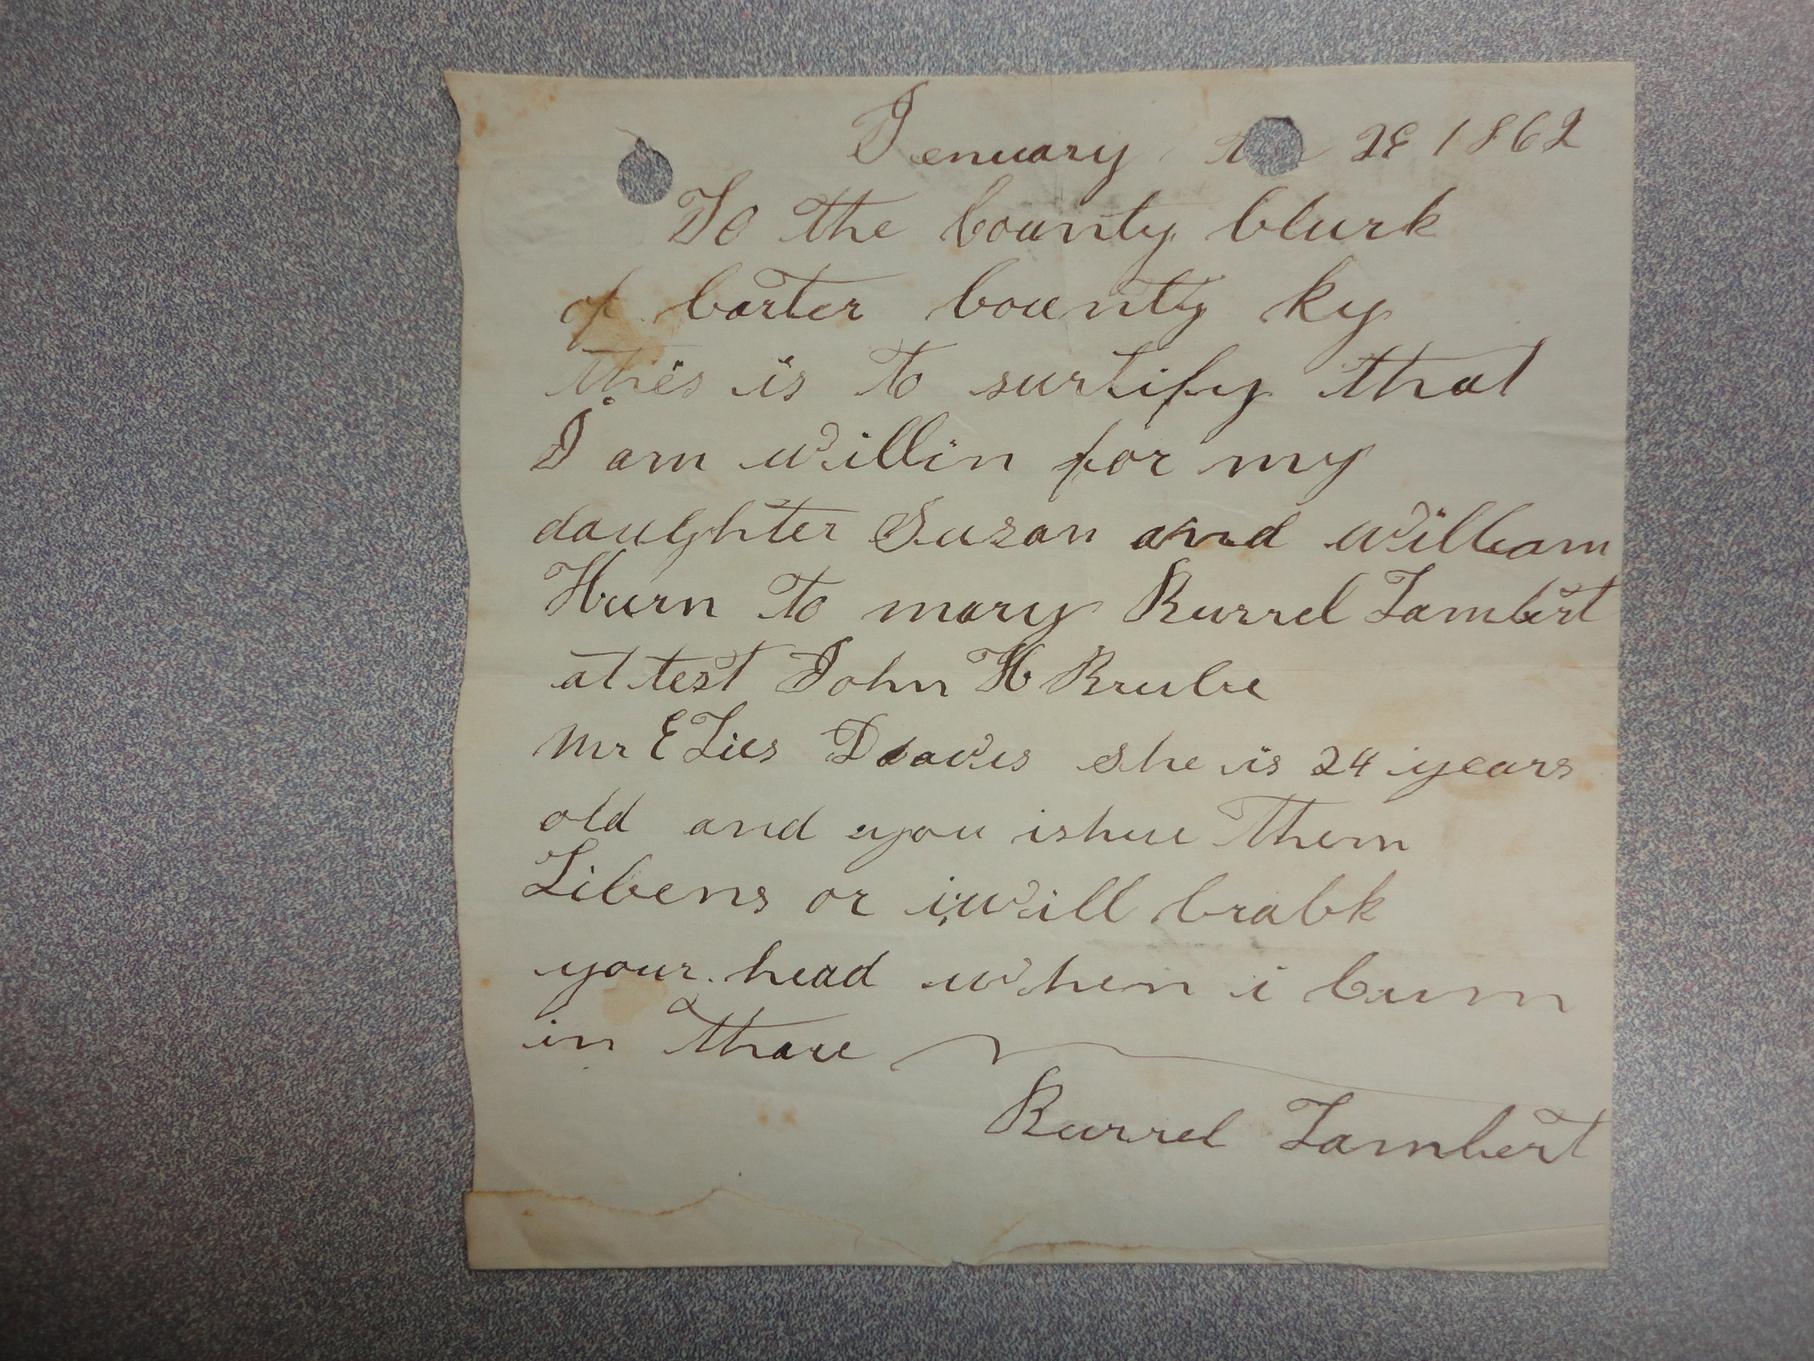 Jenuary the 28 1862
To the County Clurk
of Carter County Ky
this is to surtify that
I am willin for my
daughter Susan and william
Hurn to mary Burrel Lambert
attest John H Brube
mr E Lies Daavis she is 24 years
old and you ishue them
Libens or i will brabk
your head when i Cum
in thare
Burrel Lambert